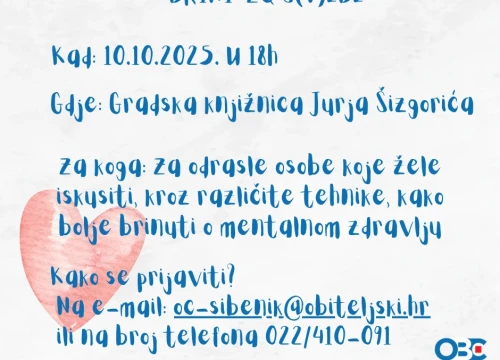 Kad: 10.10.2025. U 18h
Gdje: Gradska knjižnica Jurja Šizgorića
Za koga: Za odrasle osobe koje žele
iskusiti, kroz različite tehnike, kako
bolje brinuti o mentalnom zdravlju
Kako se prijaviti?
Na e-mail: oc-sibenik@obiteljski.hr
ili na broj telefona 022/410-091